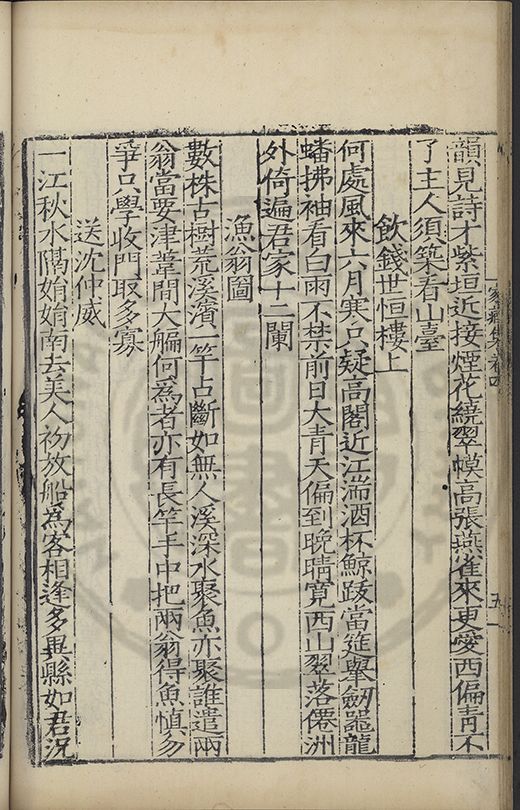 韻見詩才紫垣近接煙花繞翠幙高張燕雀來更愛西偏靑不
了主人須築看山臺
飲錢世恒樓上
何處風來六月寒只疑高閣近江湍酒杯鯨跋當筵舉劒噐龍
蟠拂袖看白雨不禁前日大青天偏到晩晴寛西山翠落僊洲
外倚遍君家十二闌
漁翁圖
數株古樹荒溪濱一竿占斷如無人溪深水聚魚亦聚誰遣兩
翁當要津葦間大艑何爲者亦有長竿手中把兩翁得魚慎勿
爭只學收門取多寡
送沈仲威
一江秋水隔娟娟南去美人初放船爲客相逢多畢縣如君况
家藏集卷四
五